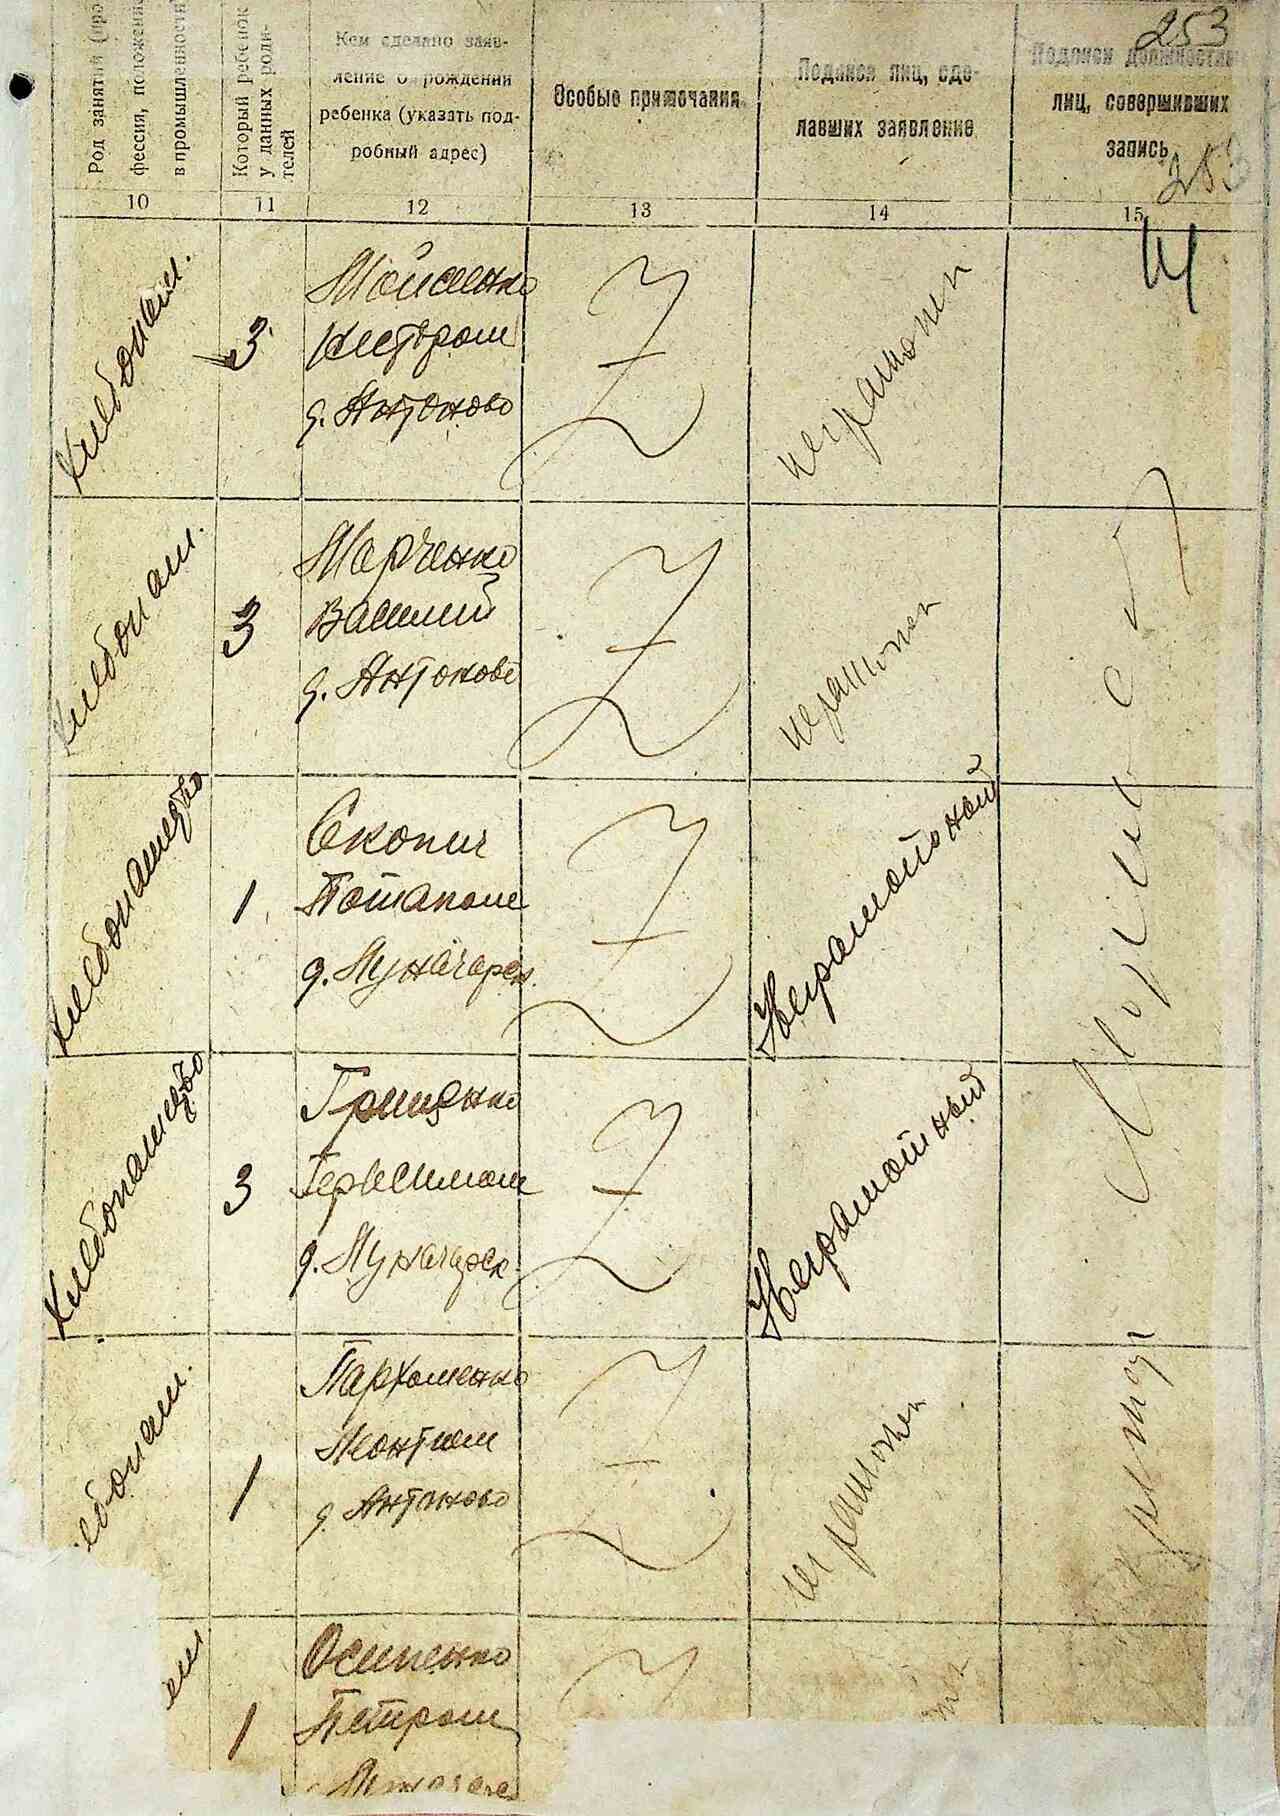 253
Род занятий (про-
фессия, положение
в промышленности
Который ребенок
у данных роди-
телей
Кем сделано заяв-
ление о рождении
ребенка (указать под-
робный адрес)
Особые примечания
Подписи лиц, сде-
лавших заявление
Подписи должностных
лиц, совершивших
запись
253
10 11 12 13 14 15
Хлебопаш.
3
Моисеенко
Нестором
д. Антоново
Z
неграмотн
Хлебопаш.
3
Марченко
Василий
д. Антоново
Z
неграмотн
Хлебопашество
1
Скопич
Потапом
д. Луначарск.
Z
Неграмотный
Хлебопашество
3
Грищенко
Герасимом
д. Луначарск.
Z
Неграмотный
ебопаш.
1
Пархоменко
Леонтием
д. Антоново
Z
неграмотн
аш
1
Осипенко
Петром